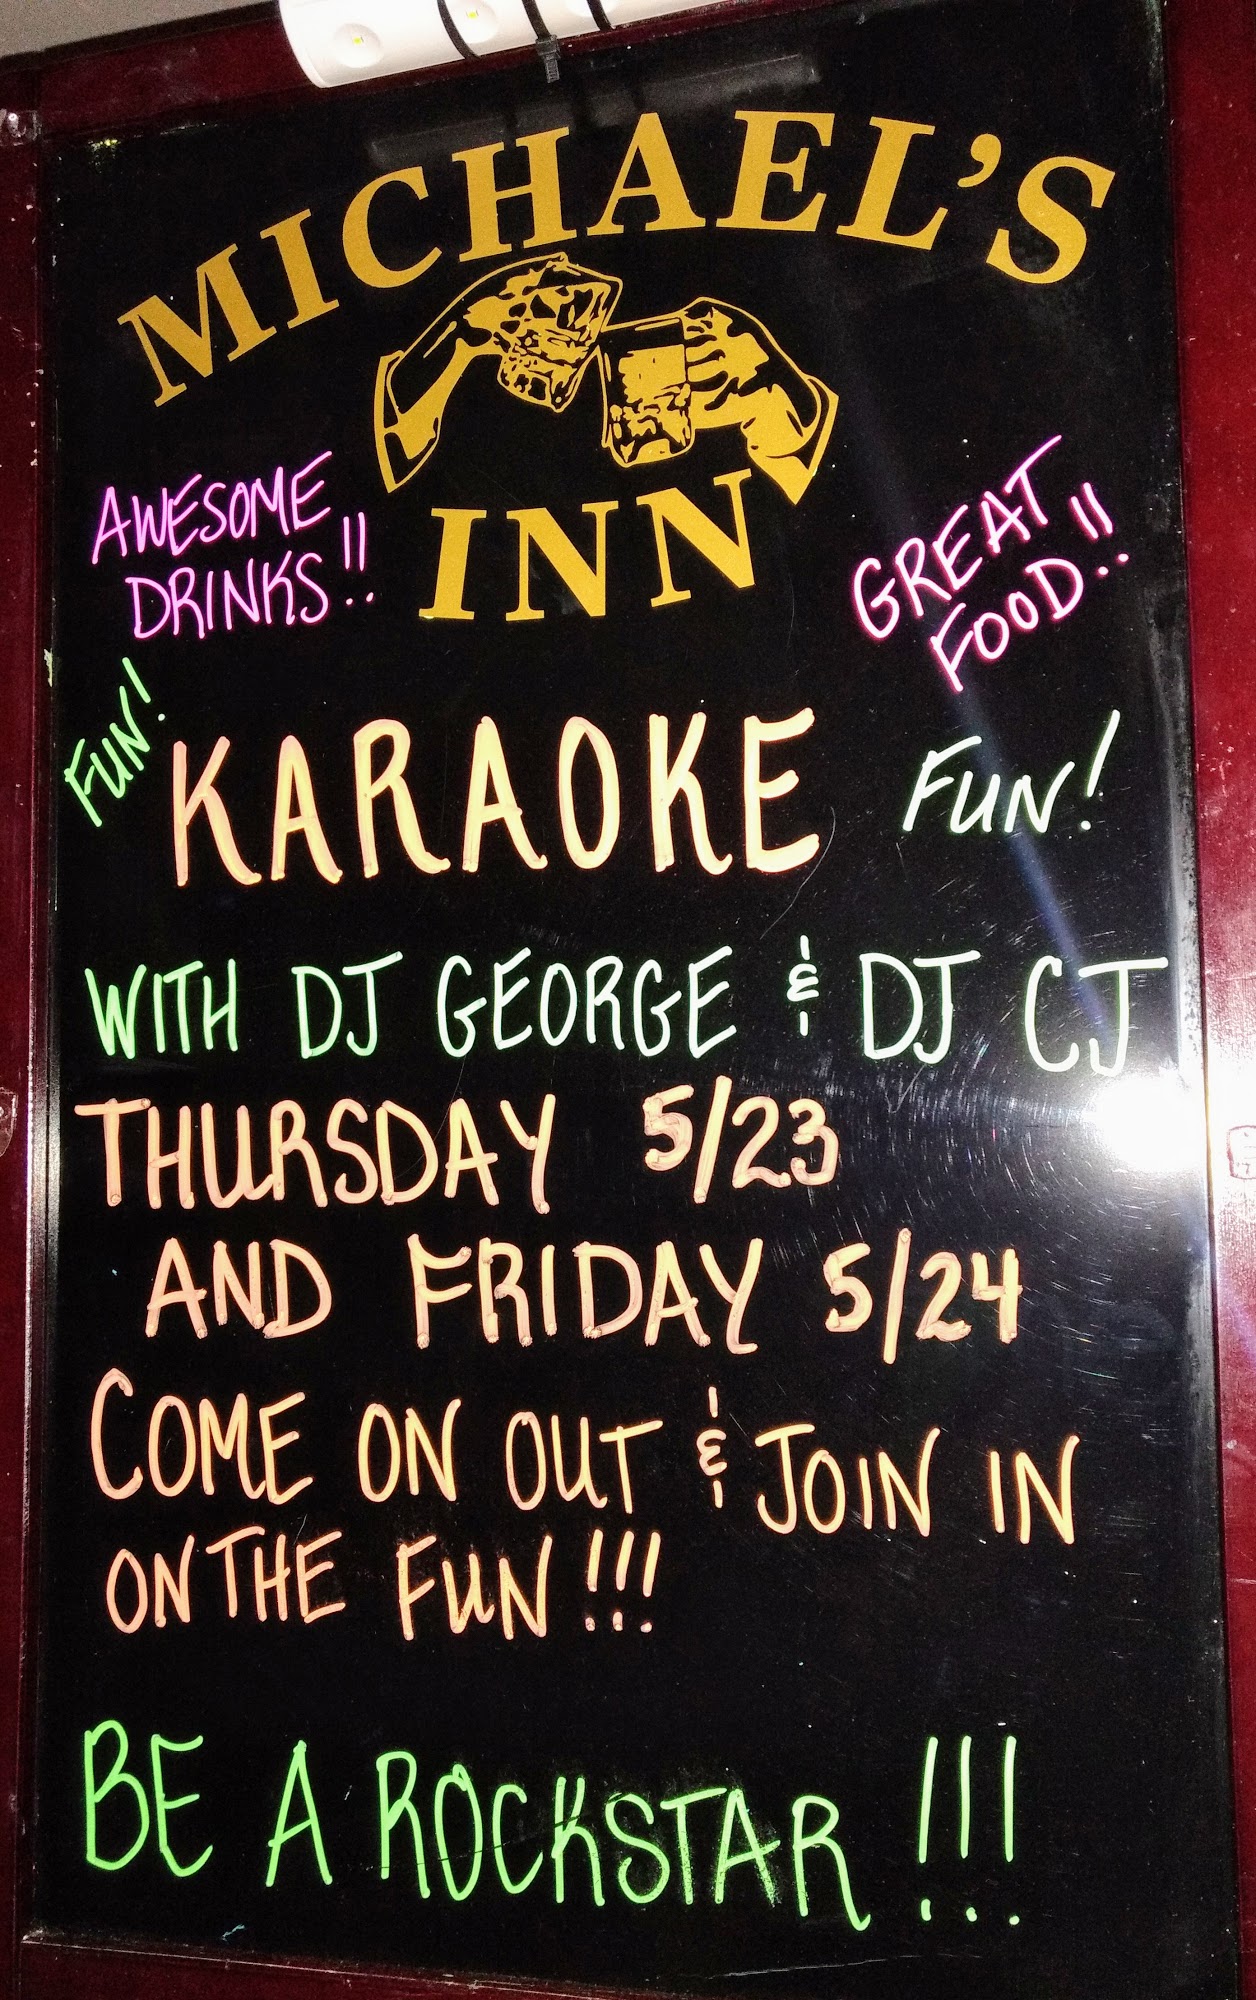 MICHAEL'S
INN
AWESOME
DRINKS!!
GREAT
FOOD!!
FUN!
KARAOKE
FUN!
WITH DJ GEORGE & DJ CJ
THURSDAY 5/23
AND FRIDAY 5/24
COME ON OUT & JOIN IN
ON THE FUN!!!
BE A ROCKSTAR!!!